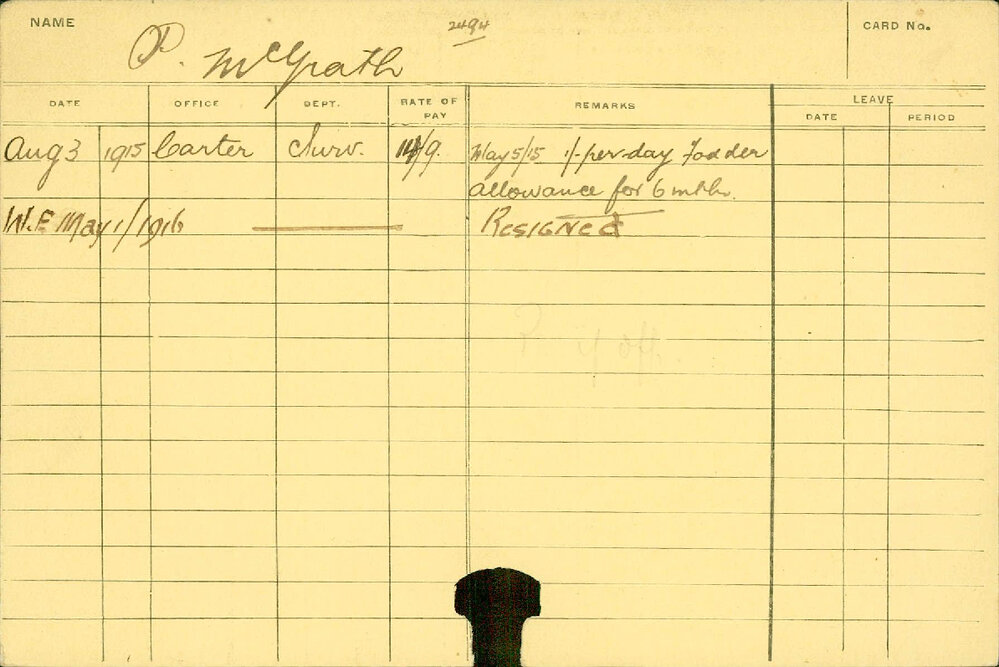 NAME
2494
CARD No.
P. McGrath
DATE OFFICE DEPT. RATE OF PAY REMARKS LEAVE
DATE PERIOD
Aug 3 1915 Carter Surv. 14/9. May 5/15 1/- per day Fodder
allowance for 6 mths.
W.E May 1/1916 RESIGNEd